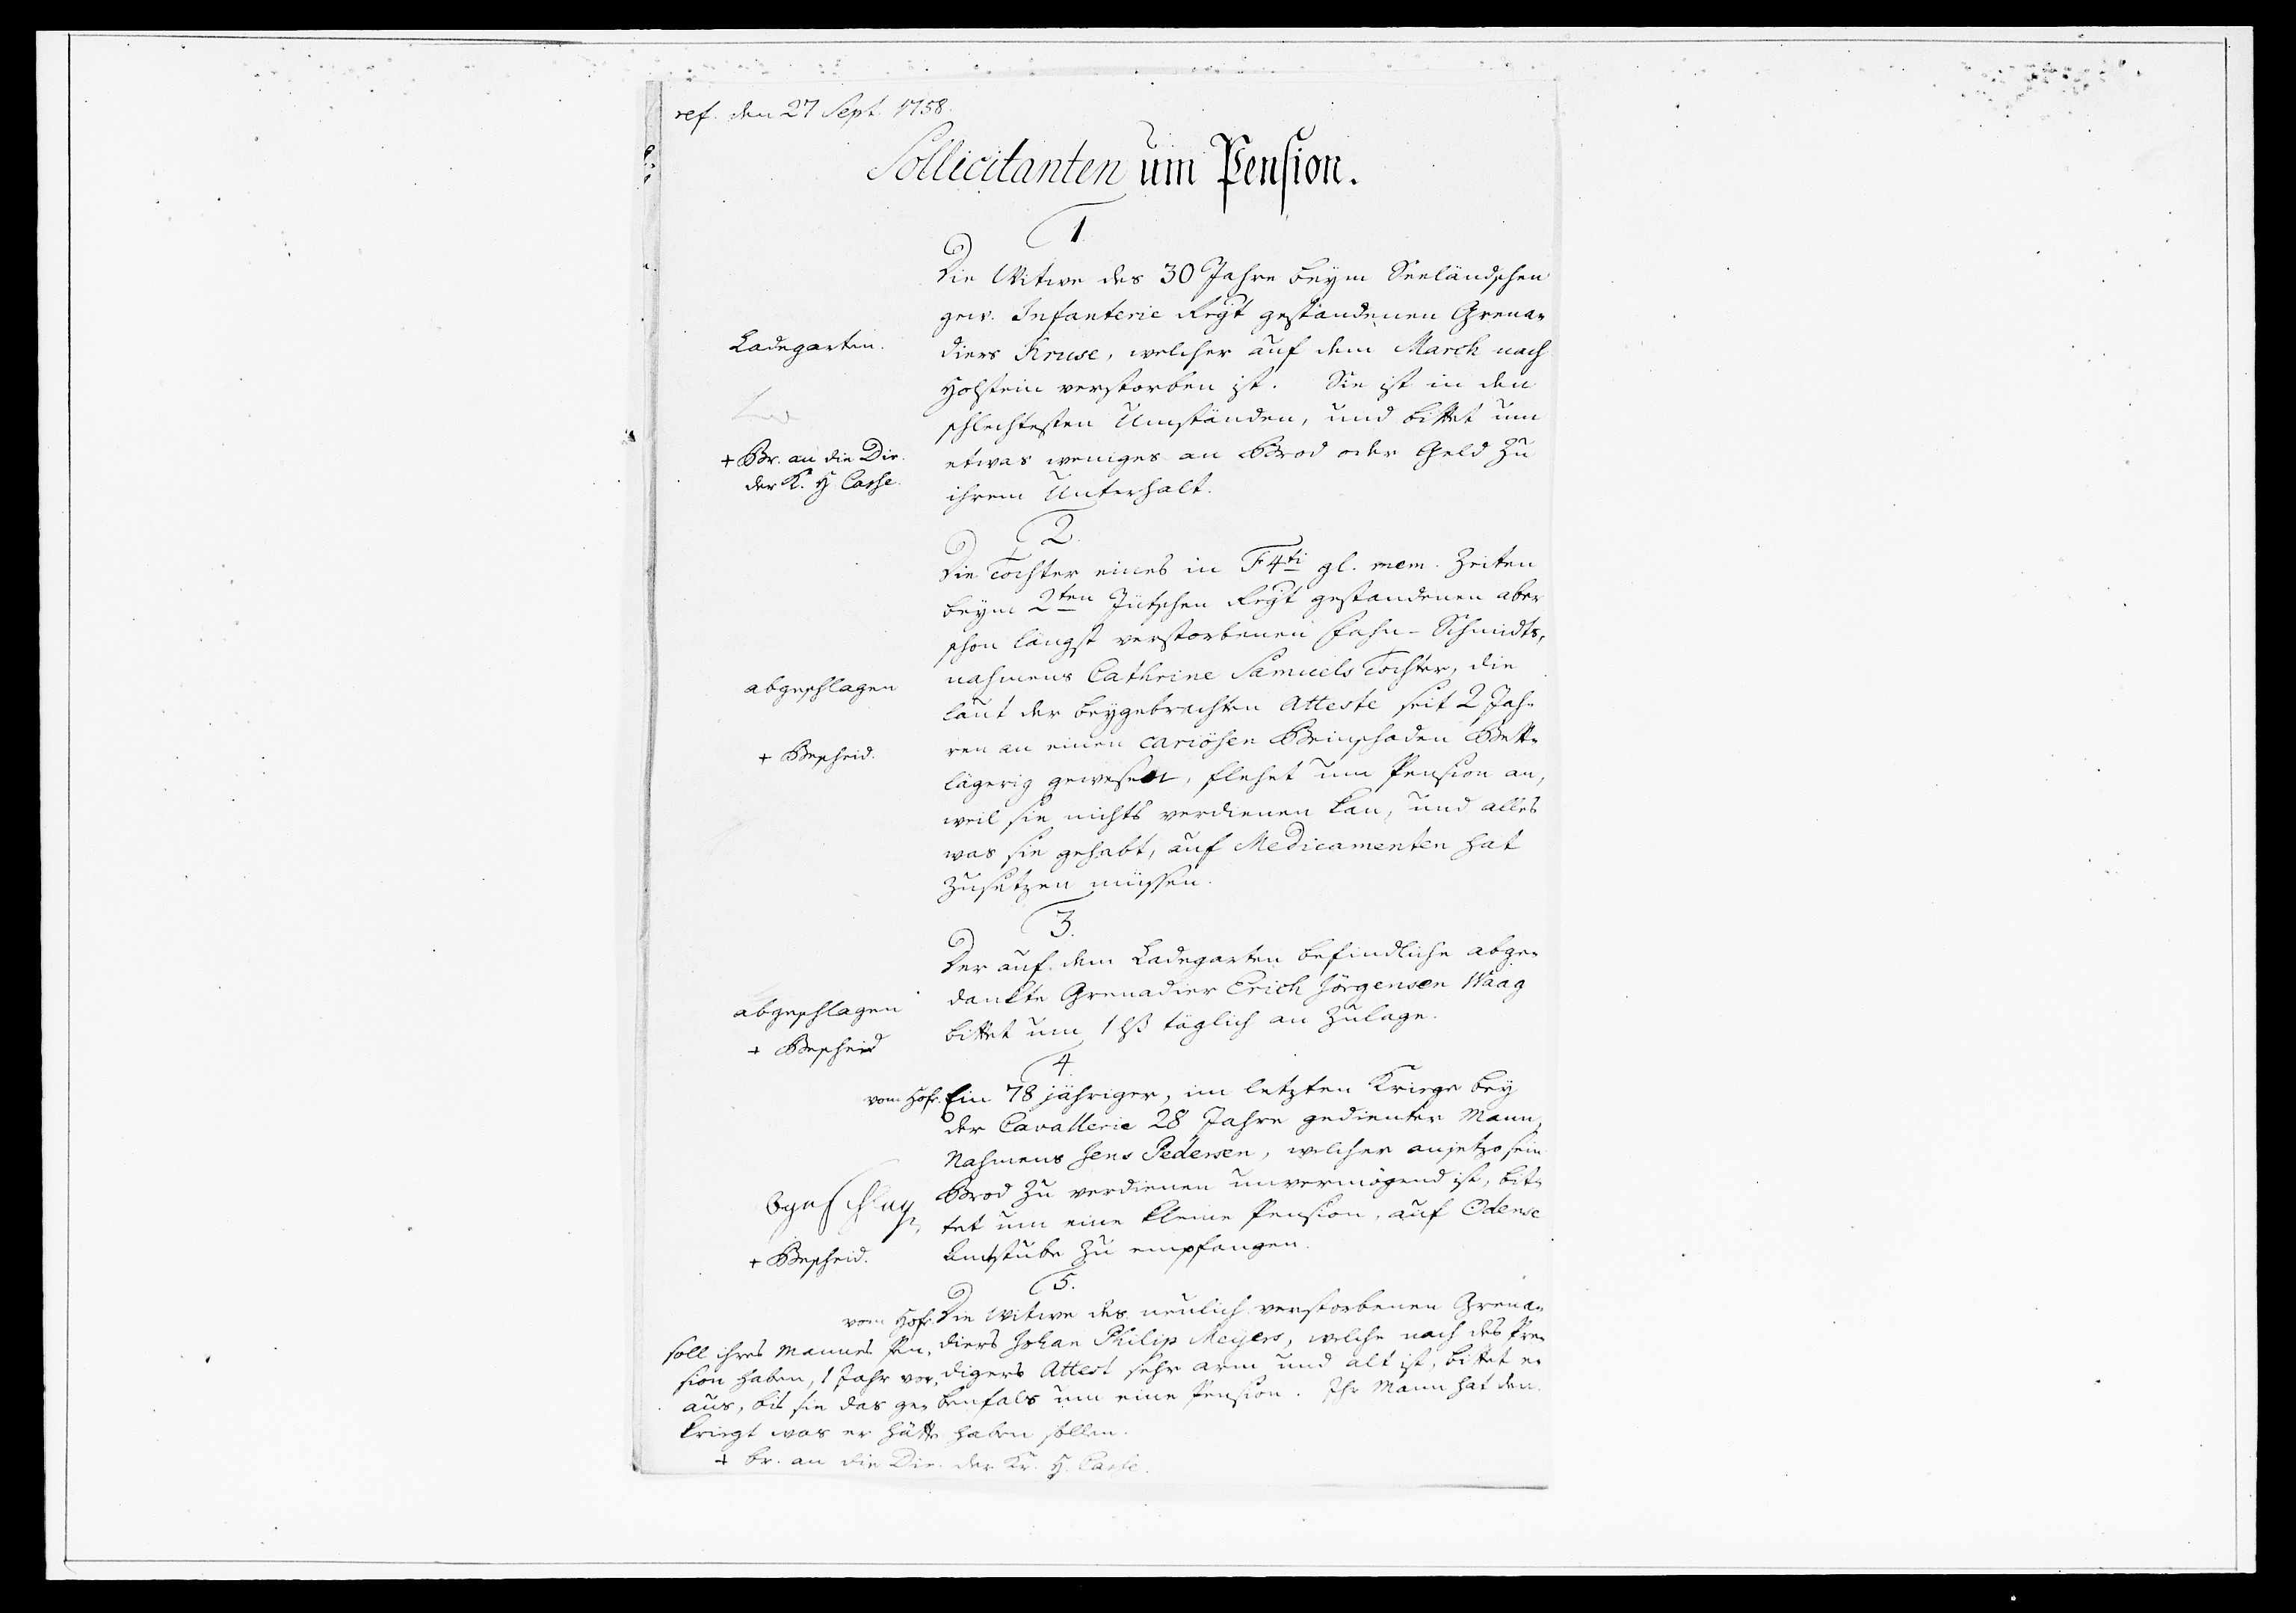 ref. den 27 Sept. 1758.
Sollicitanten um Pension.
1.
Die Witwe des 30 Jahre beym Seeländschen
gew. Infanterie Regt gestandenen Grena-
diers Kruse, welcher auf dem March nach
Holstein verstorben ist. Sie ist in den
schlechtesten Umständen, und bittet um
etwas weniges an Brod oder Geld zu
ihrem Unterhalt.
Ladegarten.
+ Br. an die Dir.
der K. H Casse.
2.
Die Tochter eines in F 4ti gl. mem. Zeiten
beym 2ten Jütschen Regt gestandenen aber
schon längst verstorbenen Fahn-Schmidts,
nahmens Cathrine Samuels Tochter, die
laut der beygebrachten Atteste seit 2 Jah-
ren an einen cariösen Beinschaden Bett-
lägerig gewesen, flehet um Pension an,
weil sie nichts verdienen kan, und alles
was sie gehabt, auf Medicamenten hat
zusetzen müssen.
abgeschlagen
+ Bescheid.
3.
Der auf dem Ladegarten befindliche abge-
dankte Grenadier Erich Jörgensen Waag
bittet um 1 lß täglich an Zulage.
abgeschlagen
+ Bescheid
4.
vom Hofe. Ein 78 jähriger, im letzten Kriege bey
der Cavallerie 28 Jahre gedienter Mann,
Nahmens Jens Pedersen, welcher anjetzo sein
Brod zu verdienen unvermögend ist, bit-
tet um eine kleine Pension, auf Odense
Amtstube zu empfangen.
+ Bescheid.
5.
vom Hofe. Die Witwe des neulich verstorbenen Grena-
diers Johan Philip Meyers, welche nach des Pre-
digers Attest sehr arm und alt ist, bittet e-
benfals um eine Pension. Ihr Mann hat den
soll ihres Mannes Pen-
sion haben, 1 Jahr vor-
aus, bis sie das ge-
kriegt was er hätte haben sollen.
+ Br. an die Dir. der Kr. H. Casse.